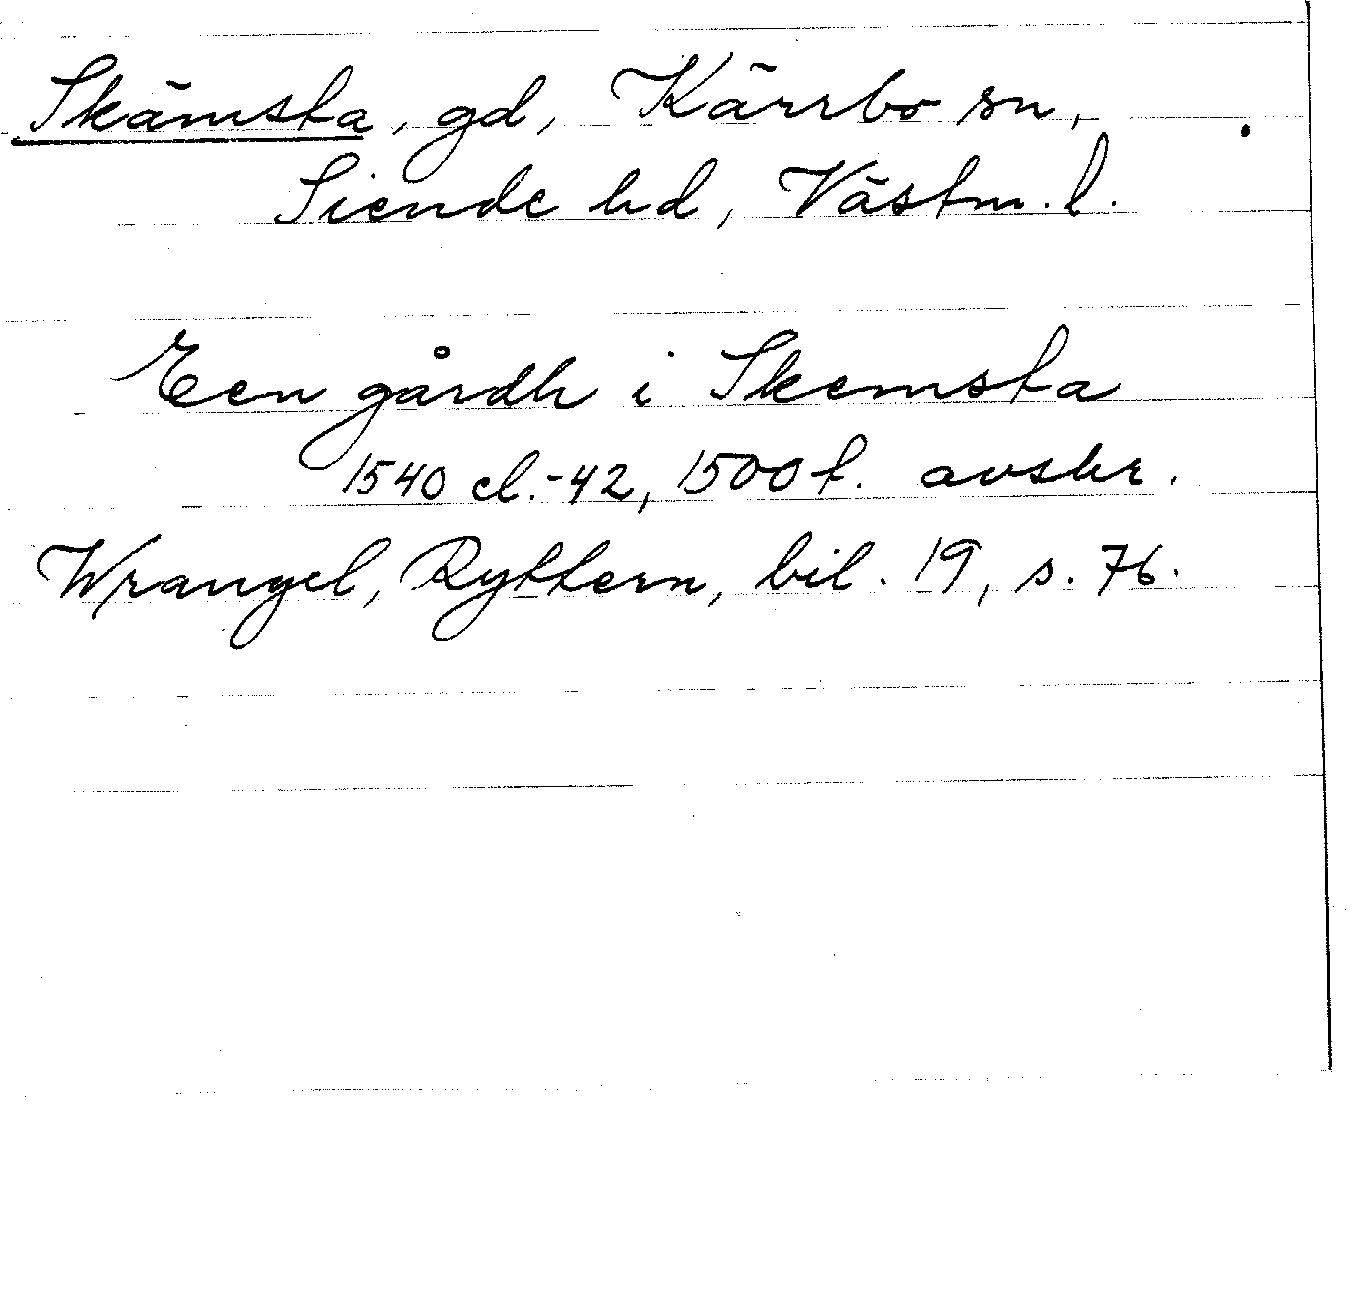 Skämsta, gd, Kärrbo sn,
Siende hd, Västm. l.
Een gårdh i Skemsta
1540 el.-42, 1500t. avskr.
Wrangel, Ryttern, bil. 19, s. 76.